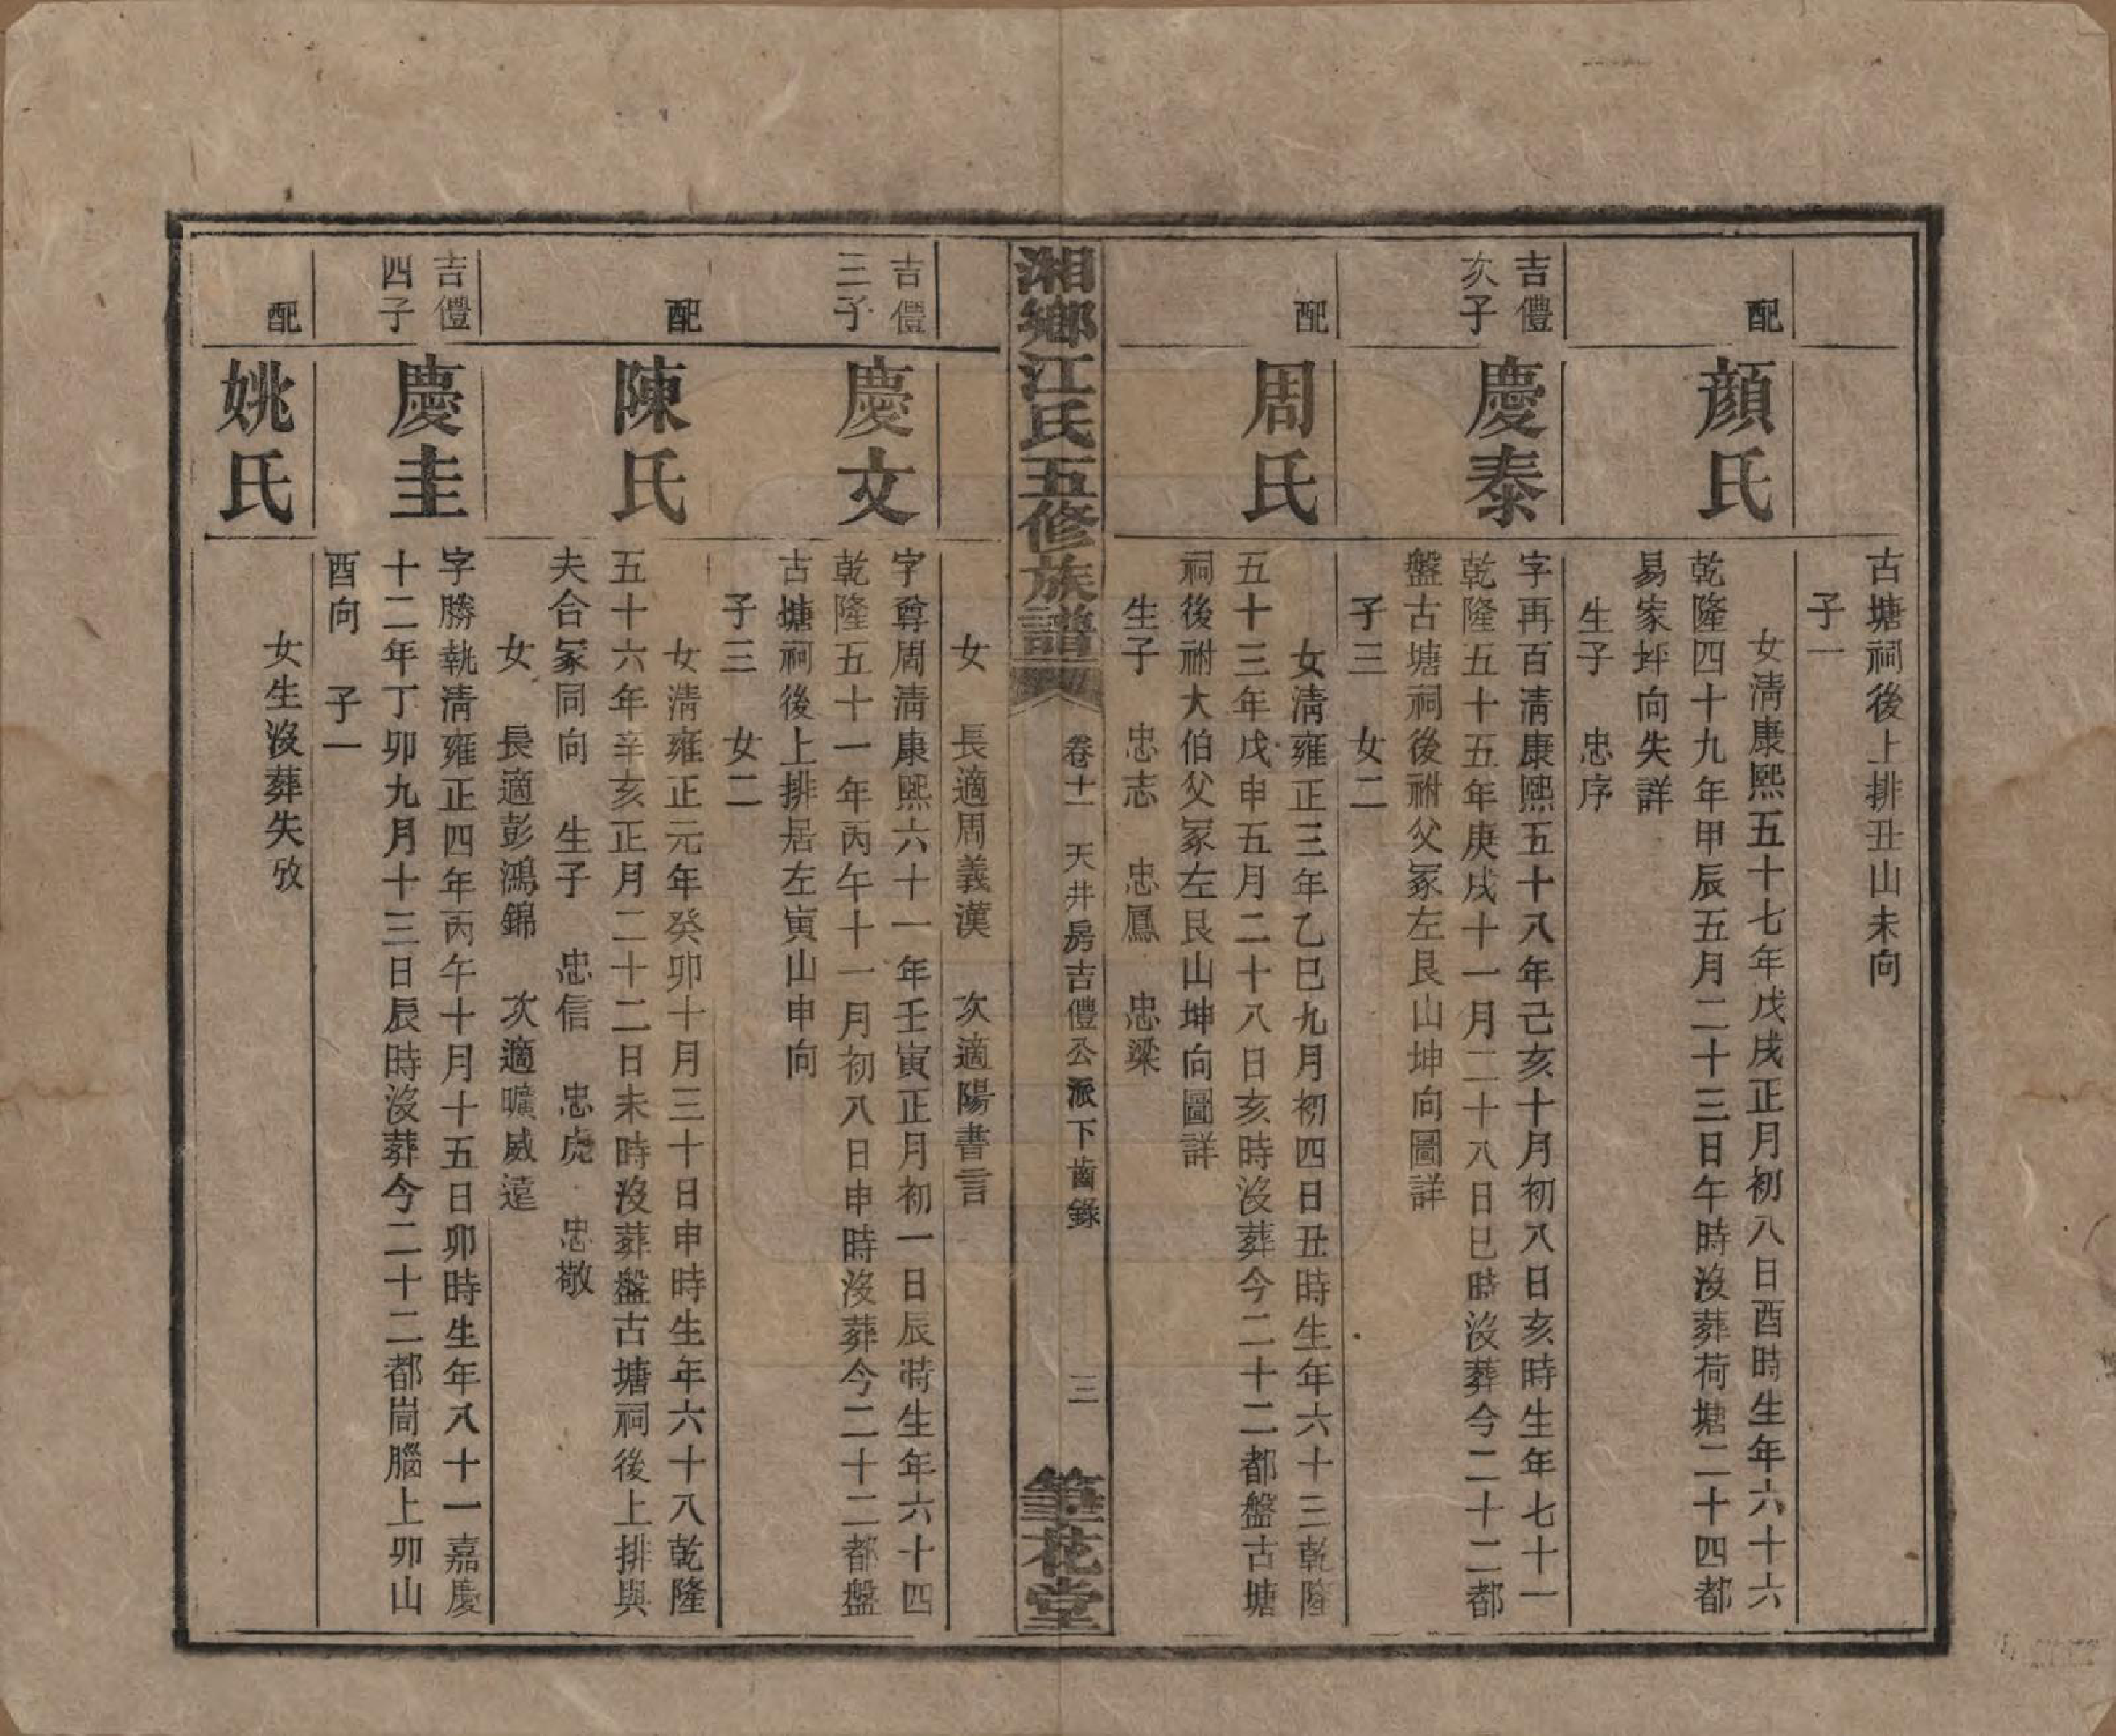 古塘祠後上排丑山未向
子一
配
顏氏
女淸康熙五十七年戊戌正月初八日酉時生年六十六
乾隆四十九年甲辰五月二十三日午時沒葬荷塘二十四都
易家坪向失詳
生子 忠序
吉僼
次子
慶泰
字再百淸康熙五十八年己亥十月初八日亥時生年七十一
乾隆五十五年庚戌十一月二十八日巳時沒葬今二十二都
盤古塘祠後祔父冢左艮山坤向圖詳
子三 女二
配
周氏
女淸雍正三年乙巳九月初四日丑時生年六十三乾隆
五十三年戊申五月二十八日亥時沒葬今二十二都盤古塘
祠後祔大伯父冢左艮山坤向圖詳
生子 忠志 忠鳳 忠梁
湘鄉江氏五修族譜
卷十一 天井房吉僼公派下齒錄
三
筆花堂
女 長適周義漢 次適陽書言
吉僼
三子
慶文
字尊周淸康熙六十一年壬寅正月初一日辰時生年六十四
乾隆五十一年丙午十一月初八日申時沒葬今二十二都盤
古塘祠後上排居左寅山申向
子三 女二
配
陳氏
女淸雍正元年癸卯十月三十日申時生年六十八乾隆
五十六年辛亥正月二十二日未時沒葬盤古塘祠後上排與
夫合冢同向 生子 忠信 忠虎 忠敬
女 長適彭鴻錦 次適曠威遠
吉僼
四子
慶圭
字勝執淸雍正四年丙午十月十五日卯時生年八十一嘉慶
十二年丁卯九月十三日辰時沒葬今二十二都峝腦上卯山
酉向 子一
配
姚氏
女生沒葬失攷